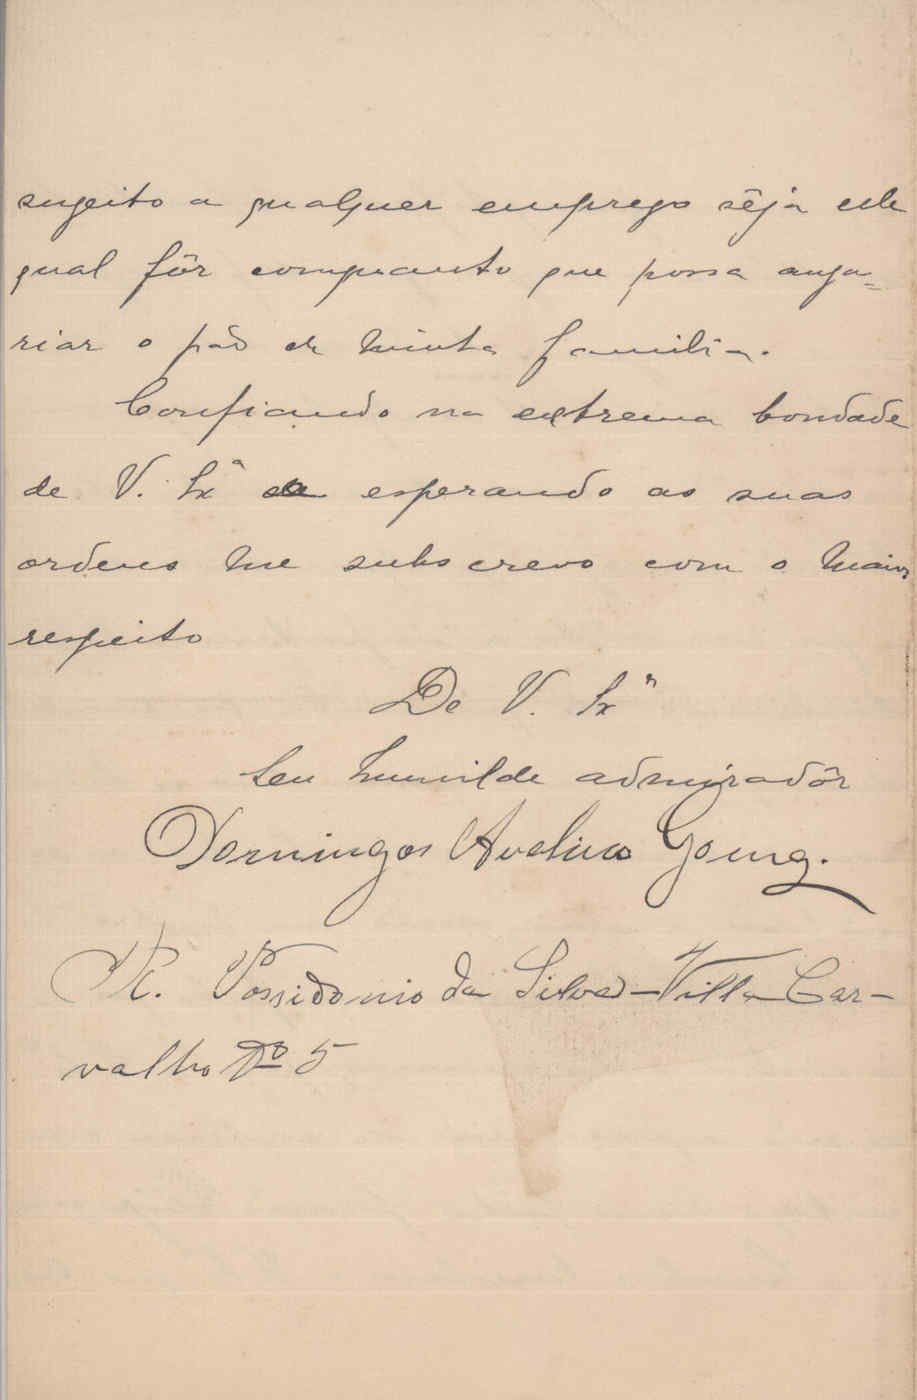 sugeito a qualquer emprego sêja elle
qual fôr comquanto que possa anga=
riar o pão de minha familia.
Confiando na extrema bondade
de V. Exª e esperando as suas
ordens me subscrevo com o maior
respeito
De V. Exª
Seu humilde admiradôr
Domingos Avelino Gomes.
R. Possidonio da Silva - Villa Car-
valho Nº 5